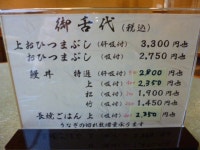 御舌代(税込)
上おひつまぶし(肝吸付)3,300円也
おひつまぶし(吸付)2,750円也
鰻丼 特選(肝吸付)2800円也
上(吸付)2,350円也
松(吸付)1,900円也
竹(吸付)1,450円也
長焼ごはん 上(吸付)2,750円也
うなぎの切れ数増量あります